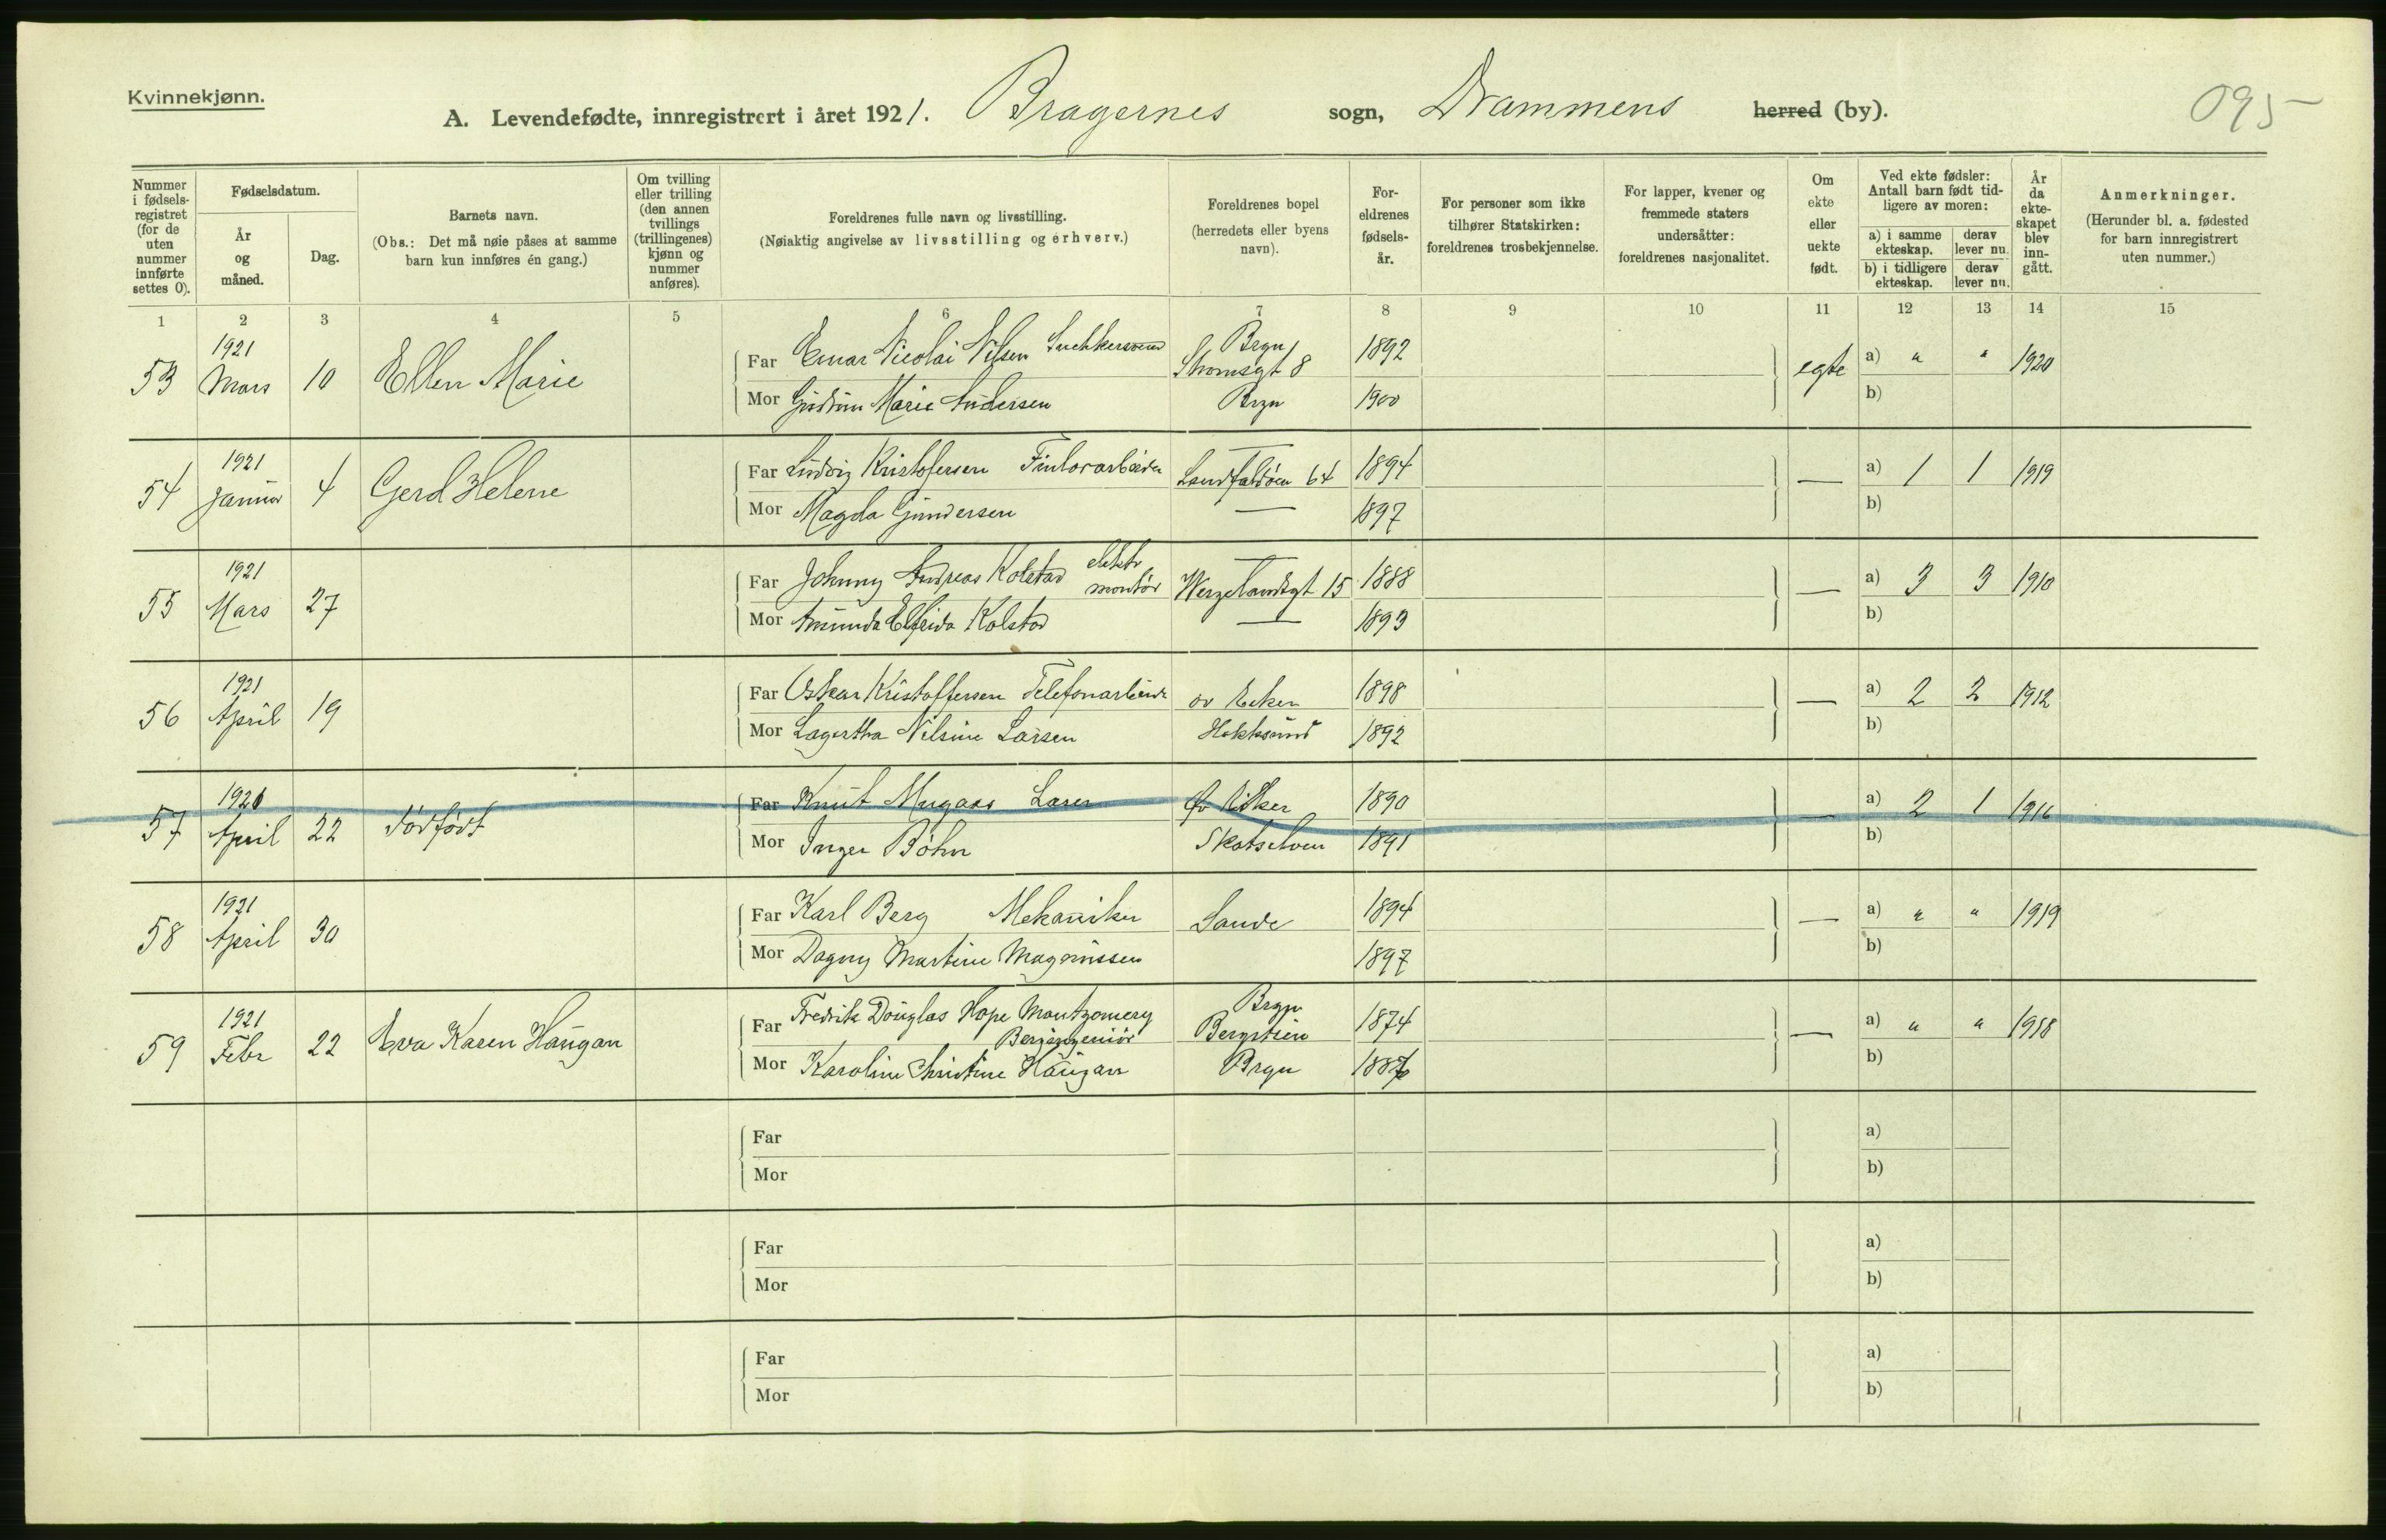 Kvinnekjønn.
A. Levendefødte, innregistrert i året 1921. Bragernes sogn, Drammens herred (by).
095
Nummer i fødselsregistret (for de uten nummer innførte settes 0).
Fødselsdatum.
År og måned.
Dag.
Barnets navn.
(Obs.: Det må nøie påses at samme barn kun innføres én gang.)
Om tvilling eller trilling (den annen tvillings (trillingenes) kjønn og nummer anføres).
Foreldrenes fulle navn og livsstilling.
(Nøiaktig angivelse av livsstilling og erhverv.)
Foreldrenes bopel
(herredets eller byens navn).
Foreldrenes fødselsår.
For personer som ikke tilhører Statskirken: foreldrenes trosbekjennelse.
For lapper, kvener og fremmede staters undersåtter: foreldrenes nasjonalitet.
Om ekte eller uekte født.
Ved ekte fødsler: Antall barn født tidligere av moren:
a) i samme ekteskap. derav lever nu.
b) i tidligere ekteskap. derav lever nu.
År da ekteskapet blev inngått.
Anmerkninger.
(Herunder bl. a. fødested for barn innregistrert uten nummer.)
1 2 3 4 5 6 7 8 9 10 11 12 13 14 15
53 1921 Mars 10 Ellen Marie
Far Einar Nicolai Nilsen Brgn Stromsgt 8 1892 egte a) " " 1920
Mor Gudrun Marie Andersen Brgn 1900 b)
54 1921 Januar 4 Gerd Helene
Far Ludvig Kristofersen Landfaldøen 64 1894 — a) 1 1 1919
Mor Magda Gundersen — 1897 b)
55 1921 Mars 27
Far Johnny Andreas Kolstad elektr montør Wergelandsgt 15 1888 — a) 3 3 1910
Mor Amunda Elfrida Kolstad — 1893 b)
56 1921 April 19
Far Oskar Kristoffersen Telefonarbeider øv Eker 1898 — a) 2 2 1912
Mor Lagertha Nilsine Larsen Hokksund 1892 b)
57 1921 April 22 dødfødt
Far Knut Mugaas Øv Eiker 1890 — a) 2 1 1916
Mor Inger Bøhn Skotselven 1891 b)
58 1921 April 30
Far Karl Berg Mekaniker Sande 1894 — a) " " 1919
Mor Dagny Martine Magnussen 1897 b)
59 1921 Febr 22 Eva Karen Haugan
Far Fredrik Douglas Hope Montgomery Bergingeniør Brgn Bergstien 1874 — a) " " 1918
Mor Karoline Christine Haugan Brgn b)
Far a)
Mor b)
Far a)
Mor b)
Far a)
Mor b)